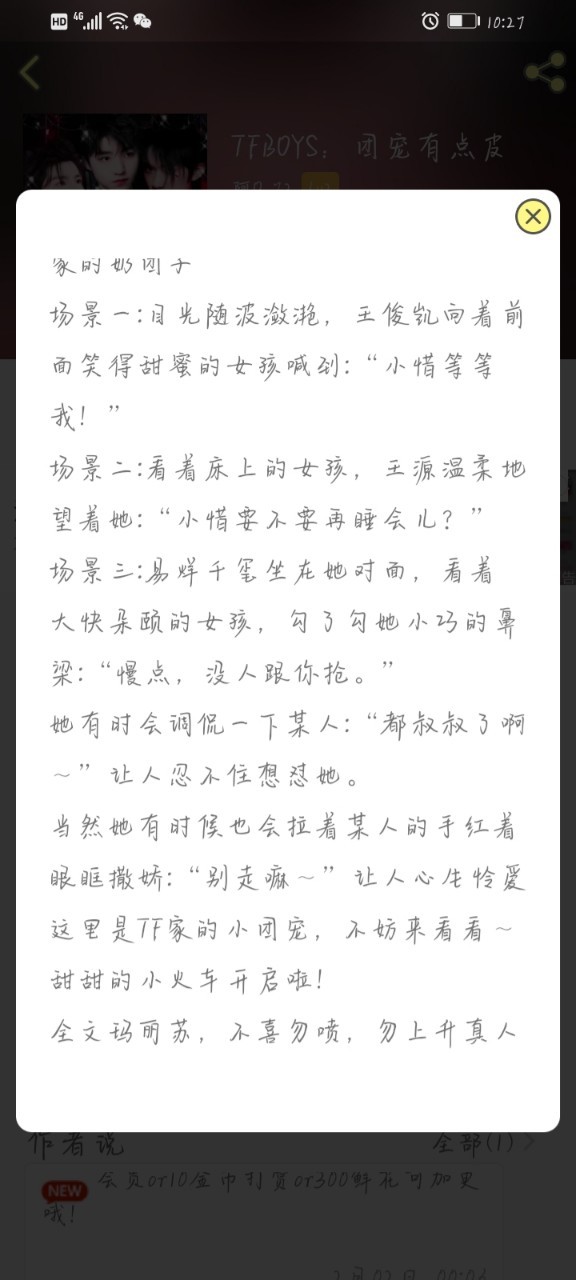 HD 4G 10:27
TFBOYS：团宠有点皮
家的奶团子
场景一:目光随波潋滟，王俊凯向着前
面笑得甜蜜的女孩喊到:“小惜等等
我！”
场景二:看着床上的女孩，王源温柔地
望着她:“小惜要不要再睡会儿？”
场景三:易烊千玺坐在她对面，看着
大快朵颐的女孩，勾了勾她小巧的鼻
梁:“慢点，没人跟你抢。”
她有时会调侃一下某人:“都叔叔了啊
～”让人忍不住想怼她。
当然她有时候也会拉着某人的手红着
眼眶撒娇:“别走嘛～”让人心生怜爱
这里是TF家的小团宠，不妨来看看～
甜甜的小火车开启啦！
全文玛丽苏，不喜勿喷，勿上升真人
作者说 全部(1)
NEW 会员or10金币打赏or300鲜花可加更
哦！